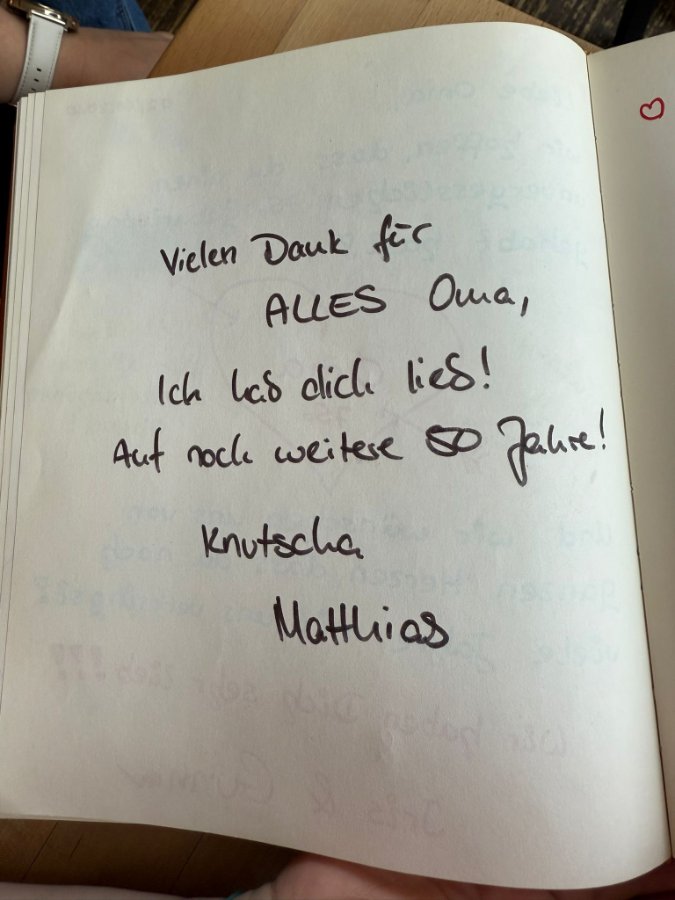 Vielen Dank für
ALLES Oma,
Ich hab dich lieb!
Auf noch weitere 50 Jahre!
Knutscha
Matthias